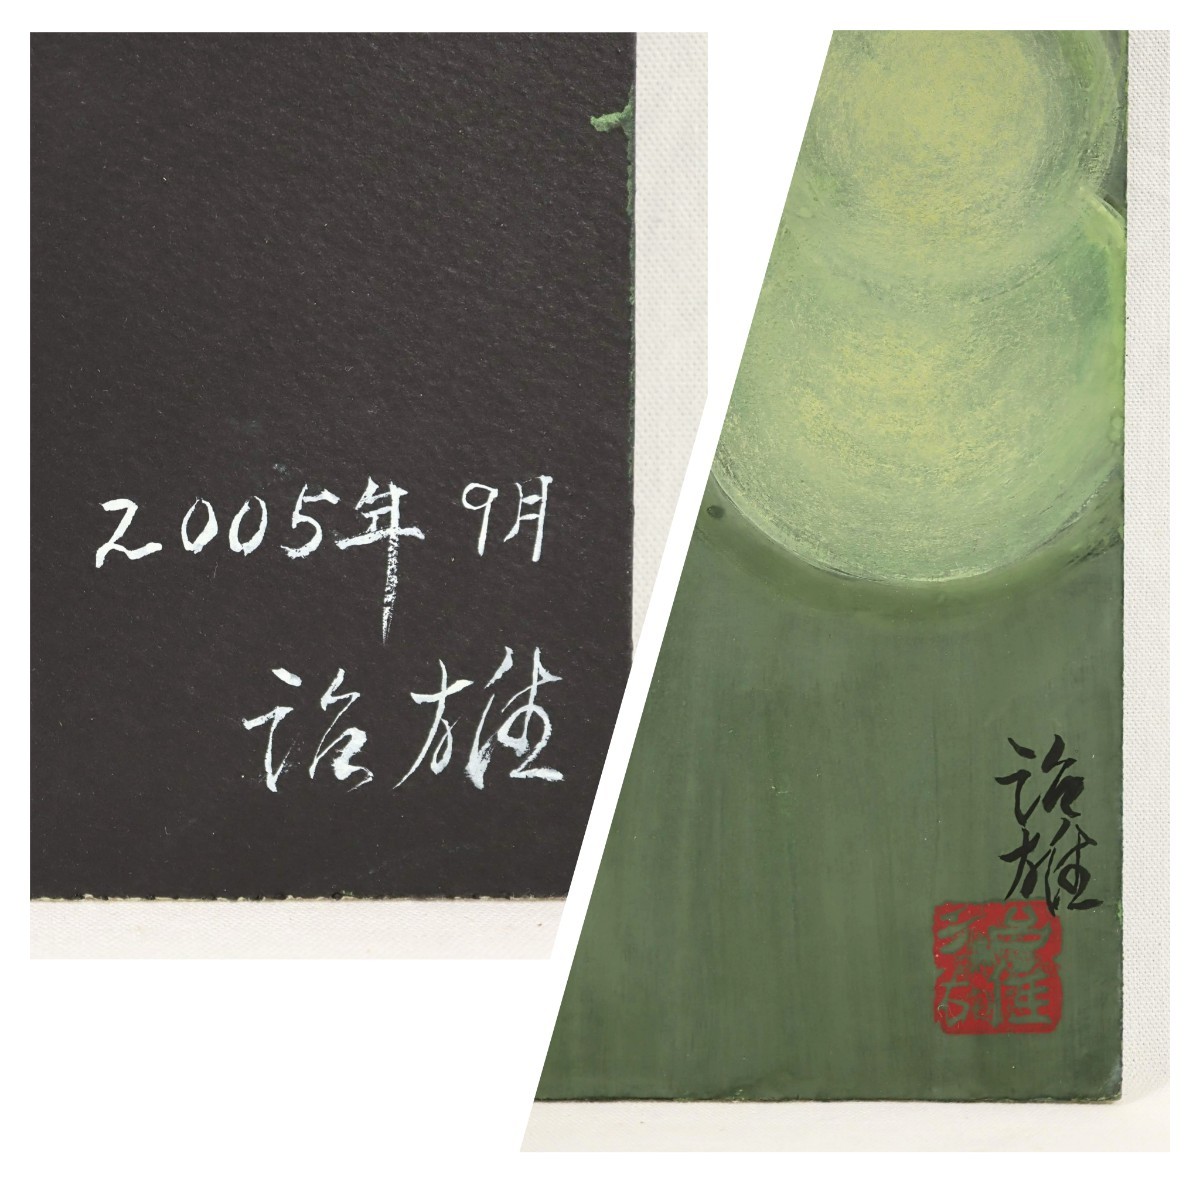 2005年 9月
詔雄
詔
雄